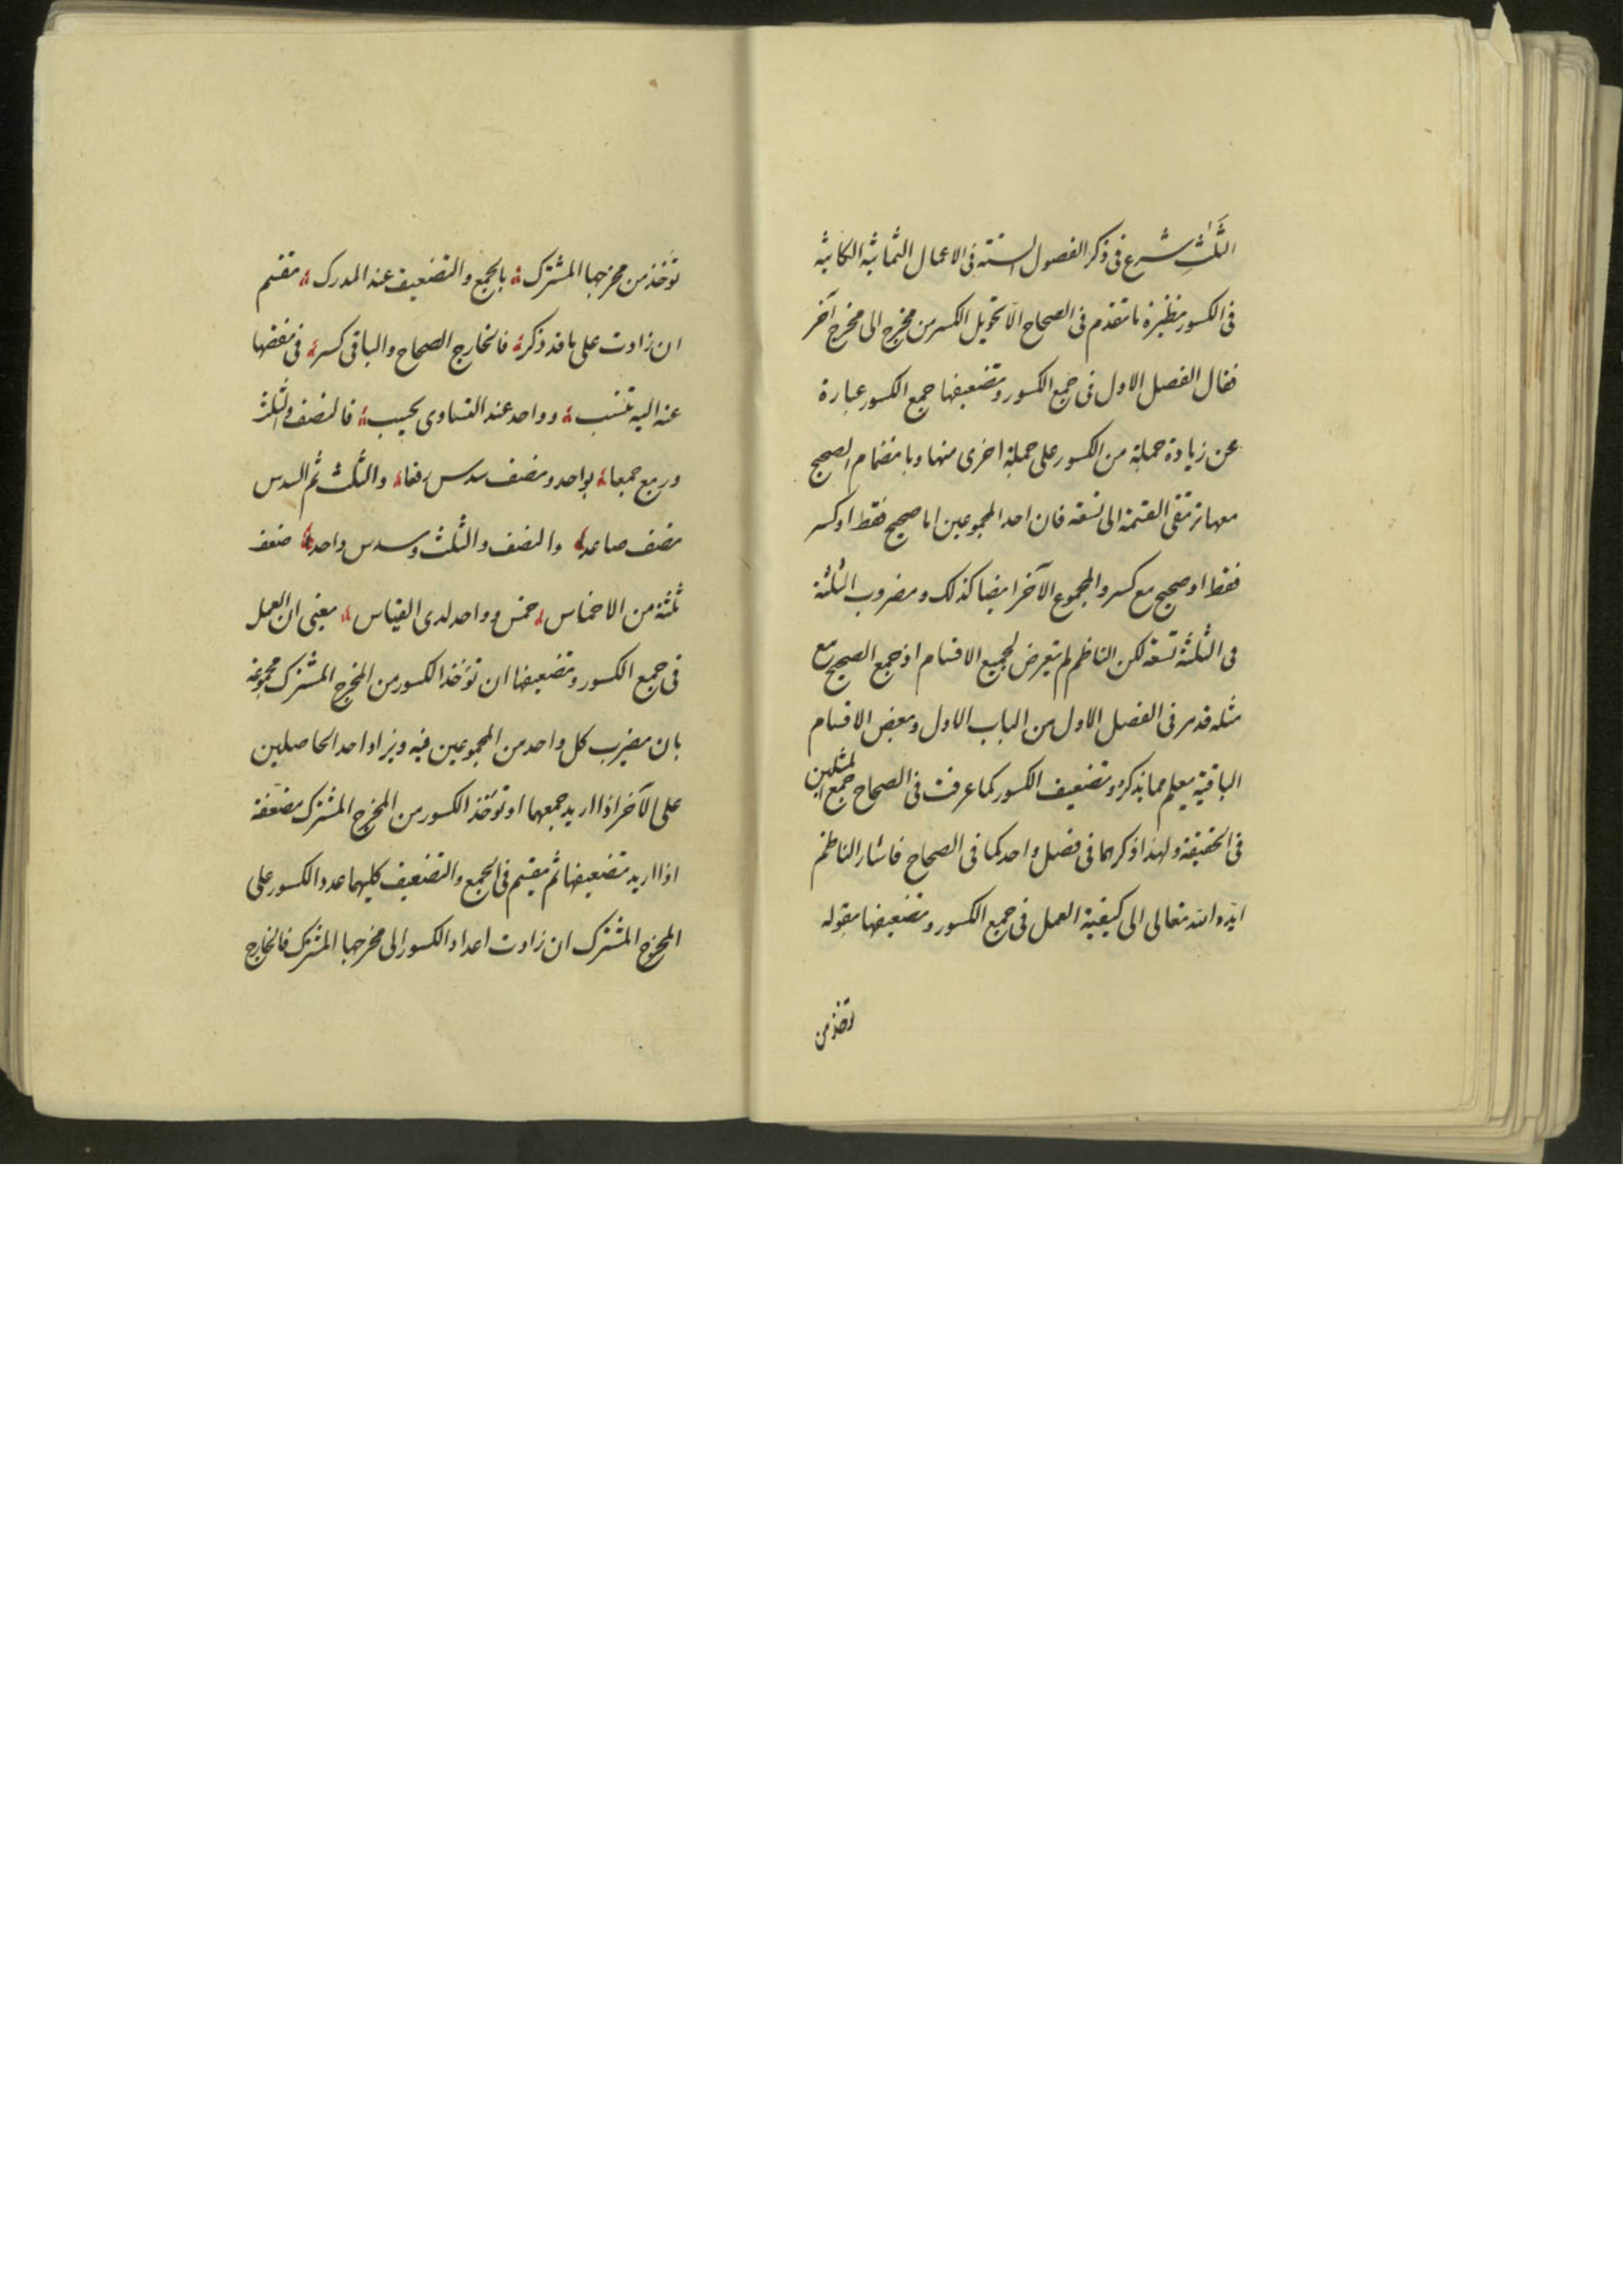 الثلث شرع فى ذكر الفصول الستة فى الاعمال الثمانية الكائنة
فى الكسور نظيرة ما تقدم فى الصحاح الا تحويل الكسر من مخرج الى مخرج آخر
فقال الفصل الاول فى جمع الكسور وتضعيفها جمع الكسور عبارة
عن زيادة جملة من الكسور على جملة اخرى منها وبانضمام الصحيح
معها ترتقى القسمة الى تسعة فان احد المجموعين اما صحيح فقط او كسر
فقط او صحيح مع كسر والمجموع الآخر ايضا كذلك ومضروب الثلثة
فى الثلثة تسعة لكن الناظم لم يتعرض لجميع الاقسام اذ جمع الصحيح مع
مثله قد مر فى الفصل الاول من الباب الاول وبعض الاقسام
الباقية يعلم مما يذكر وتضعيف الكسور كما عرفت فى الصحاح جمع المثلين
فى الحقيقة ولهذا ذكرهما فى فصل واحد كما فى الصحاح فاشار الناظم
ايده الله تعالى الى كيفية العمل فى جمع الكسور وتضعيفها بقوله
تؤخذ من
تؤخذ من مخرجها المشترك بالجمع والتضعيف عند المدرك تقسم
ان زادت على ما قد ذكر فالخارج الصحاح والباقى كسر فى نقصها
عنه اليه تنسب وواحد عند التساوى يحسب فالنصف والثلث
وربع جمعا بواحد ونصف سدس رفعا والثلث ثم السدس
نصف صاعدا والنصف والثلث وسدس واحدا ضعف
ثلثة من الاخماس خمس وواحد لدى القياس يعنى ان العمل
فى جمع الكسور وتضعيفها ان تؤخذ الكسور من المخرج المشترك مجموعة
بان يضرب كل واحد من المجموعين فيه ويزاد احد الحاصلين
على الآخر اذا اريد جمعهما او تؤخذ الكسور من المخرج المشترك مضعفة
اذا اريد تضعيفها ثم يقسم فى الجمع والتضعيف كليهما عدد الكسور على
المخرج المشترك ان زادت اعداد الكسور الى مخرجها المشترك فالخارج